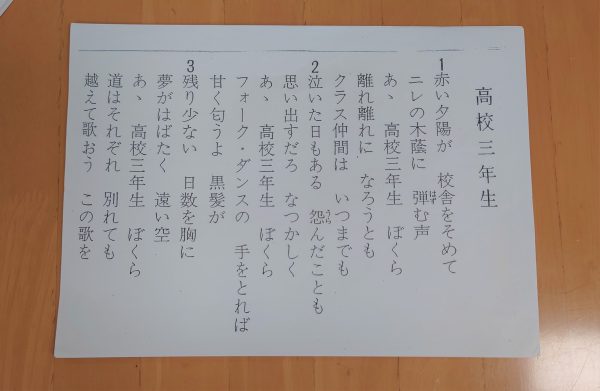 高校三年生
1
赤い夕陽が 校舎をそめて
ニレの木蔭に 弾む声
はず
あゝ 高校三年生 ぼくら
離れ離れに なろうとも
クラス仲間は いつまでも
2
泣いた日もある 怨んだことも
うら
思い出すだろ なつかしく
あゝ 高校三年生 ぼくら
フォーク・ダンスの 手をとれば
甘く匂うよ 黒髪が
3
残り少ない 日数を胸に
夢がはばたく 遠い空
あゝ 高校三年生 ぼくら
道はそれぞれ 別れても
越えて歌おう この歌を